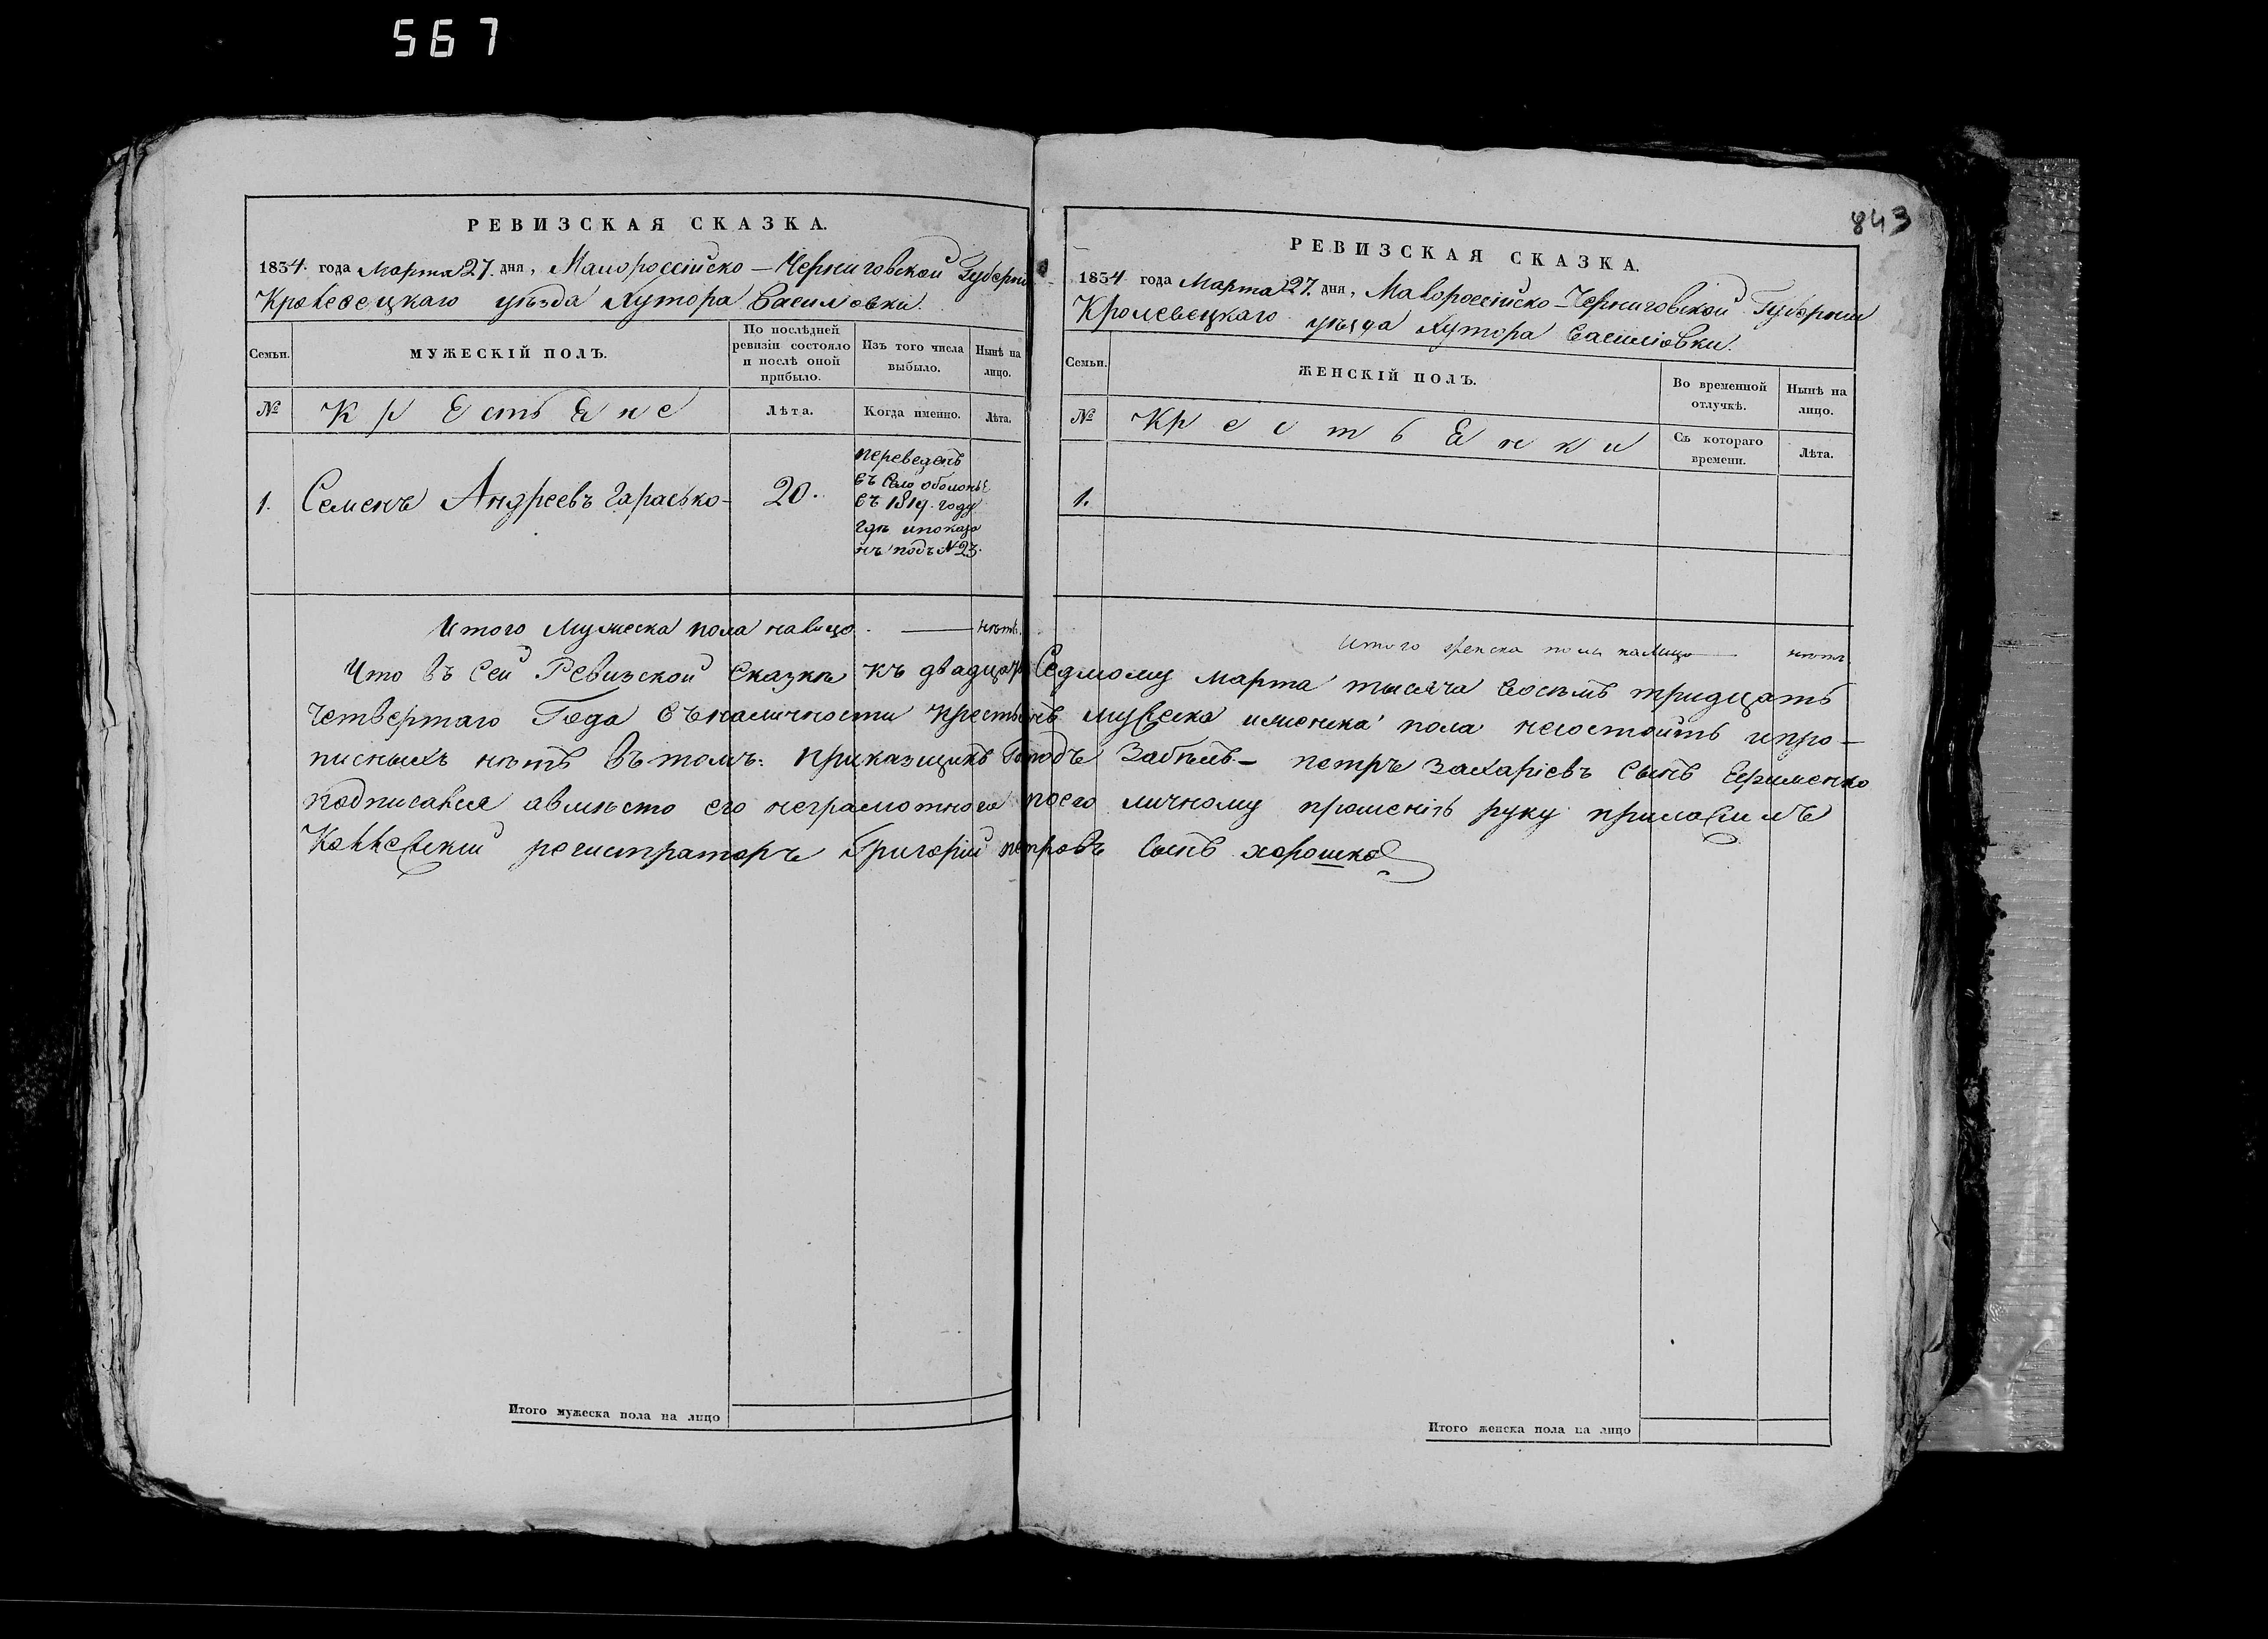 567
843
РЕВИЗСКАЯ СКАЗКА.
1834. года Марта 27. дня, Малороссійско — Черниговской Губерніи
Кролевецкаго уѣзда Хутора Василовки.
Семьи.
МУЖЕСКІЙ ПОЛЪ.
По послѣдней ревизіи состояло и послѣ оной прибыло.
Изъ того числа выбыло.
Нынѣ на лицо.
№
Крестьяне
Лѣта.
Когда именно.
Лѣта.
1. Семенъ Андреевъ Гарасько - 20.
переведенъ
въ село оболонье
въ 1819. году
гдѣ и показа
нъ подъ № 23.
Итого мужеска пола налицо. — нѣтъ.
РЕВИЗСКАЯ СКАЗКА.
1834 года Марта 27. дня, Малороссійско — Черниговской Губерніи
Кролевецкаго уѣзда Хутора Василіовки.
Семьи.
ЖЕНСКІЙ ПОЛЪ.
Во временной отлучкѣ.
Нынѣ на лицо.
№
Крестьянки
Съ котораго времени.
Лѣта.
1.
Итого женска пола налицо — нѣтъ.
Что въ сей Ревизской сказкѣ къ двадцать Седмому марта тысяча восемь тридцать
четвертаго Года въ наличности крестьянъ мужеска и женска пола несостоитъ и про-
писныхъ нѣтъ въ томъ: прикащикъ петръ Захаріевъ сынъ Ефименко
подписался авмѣсто его неграмотного поего личному прошенію руку приложилъ
Коллежскій регистраторъ Григорій петровъ сынъ хорошко
Итого мужеска пола на лицо
Итого женска пола на лицо